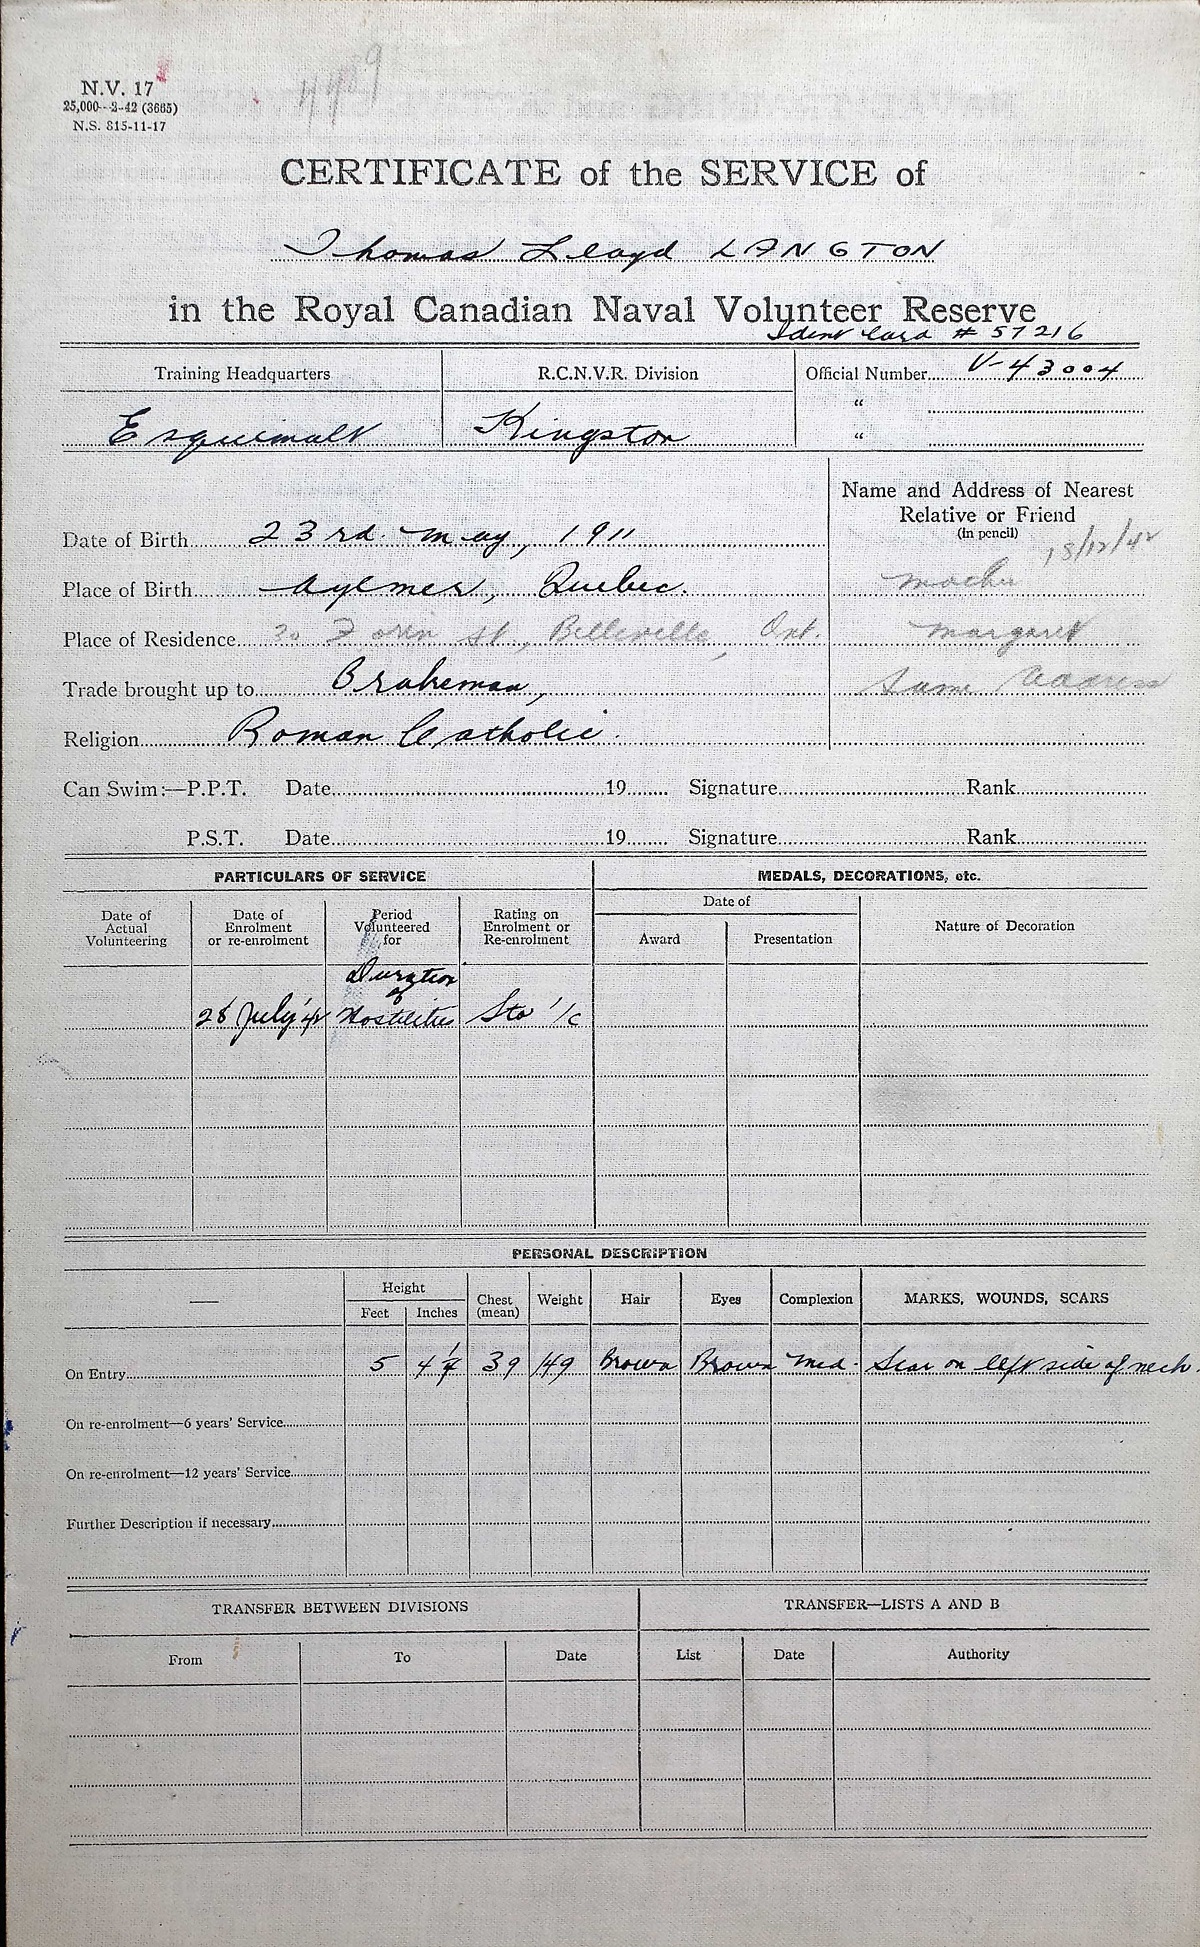 N.V. 17
25,000—2-42 (3665)
N.S. 815-11-17
4489
CERTIFICATE of the SERVICE of
Thomas Lloyd LANGTON
in the Royal Canadian Naval Volunteer Reserve
Ident Card # 57216
Training Headquarters R.C.N.V.R. Division Official Number V-43004
"
Esquimalt Kingston "
Name and Address of Nearest
Relative or Friend
(In pencil)
18/12/42
Date of Birth 23rd. May, 1911
Place of Birth Aylmer, Quebec. Mother
Place of Residence 30 St., Belleville, Ont. Margaret
Trade brought up to Brakeman, Same Address
Religion Roman Catholic.
Can Swim:—P.P.T. Date 19 Signature Rank
P.S.T. Date 19 Signature Rank
PARTICULARS OF SERVICE MEDALS, DECORATIONS, etc.
Date of Actual Volunteering Date of Enrolment or re-enrolment Period Volunteered for Rating on Enrolment or Re-enrolment Date of Nature of Decoration
Award Presentation
Duration
of
28 July '42 Hostilities Sto 1/c
PERSONAL DESCRIPTION
— Height Chest (mean) Weight Hair Eyes Complexion MARKS, WOUNDS, SCARS
Feet Inches
On Entry 5 4 39 149 Brown Brown Med. Scar on left side of neck.
On re-enrolment—6 years' Service
On re-enrolment—12 years' Service
Further Description if necessary
TRANSFER BETWEEN DIVISIONS TRANSFER—LISTS A AND B
From To Date List Date Authority